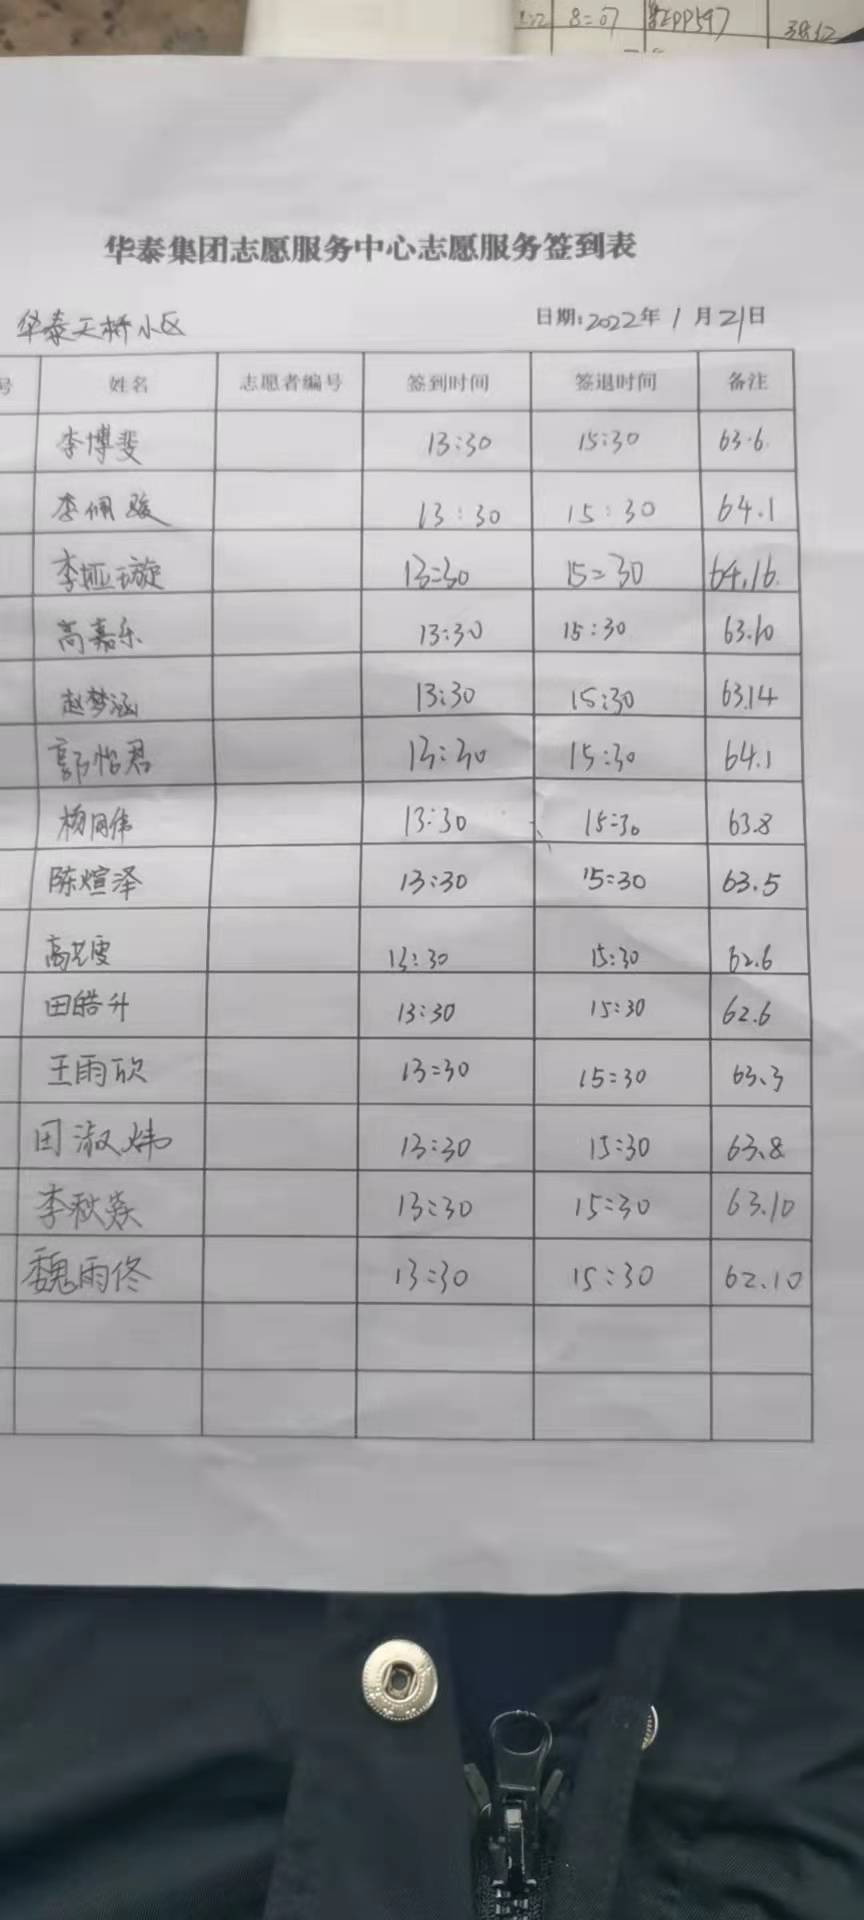 8:07
华泰集团志愿服务中心志愿服务签到表
华泰天桥小区 日期:2022年1月21日
号 姓名 志愿者编号 签到时间 签退时间 备注
李博斐 13:30 15:30 63.6
李佩骏 13:30 15:30 64.1
李娅璇 13:30 15:30 64.16
高嘉乐 13:30 15:30 63.10
赵梦涵 13:30 15:30 63.14
郭怡君 13:30 15:30 64.1
杨同伟 13:30 15:30 63.8
陈煊泽 13:30 15:30 63.5
高艺雯 13:30 15:30 62.6
田皓升 13:30 15:30 62.6
王雨欣 13:30 15:30 63.3
田淑炜 13:30 15:30 63.8
李秋 13:30 15:30 63.10
魏雨佟 13:30 15:30 62.10